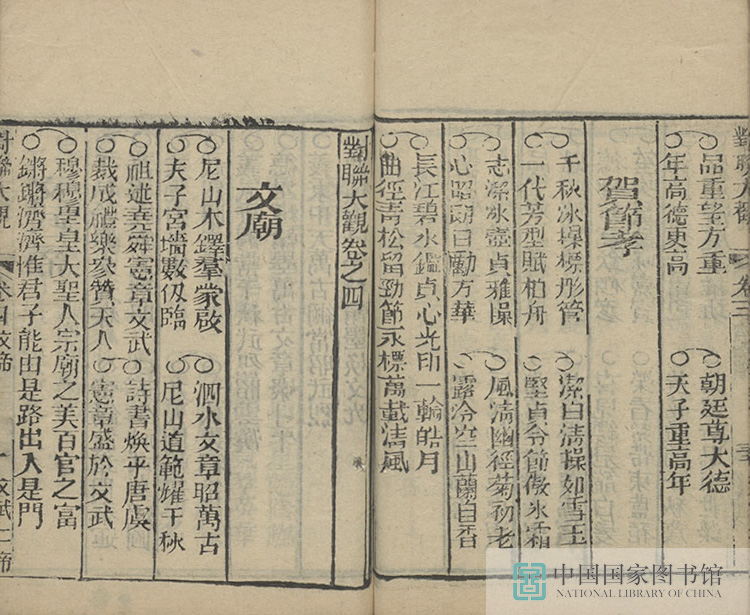 對聯大觀 卷三
品重望方重
年高德更高
朝廷尊大德
天子重高年
賀節孝
千秋冰操標彤管
一代芳型賦柏舟
潔白清操如雪玉
堅貞令節傲氷霜
志潔冰壺貞雅操
心昭朗日勵方華
風淸幽徑菊初老
露冷空山蘭自香
長江碧水鑑貞心光印一輪皓月
曲徑青松留勁節永標萬載清風
對聯大觀卷之四
文廟
尼山木鐸羣蒙啟
夫子宮墻數仭臨
泗水文章昭萬古
尼山道範燿千秋
祖述堯舜憲章文武
裁成禮樂參贊天人
詩書煥乎唐虞
憲章盛於文武
穆穆皇皇大聖人宗廟之美百官之富
鏘鏘濟濟惟君子能由是路出入是門
對聯大觀 卷四文帝
中国国家图书馆
NATIONAL LIBRARY OF CHINA